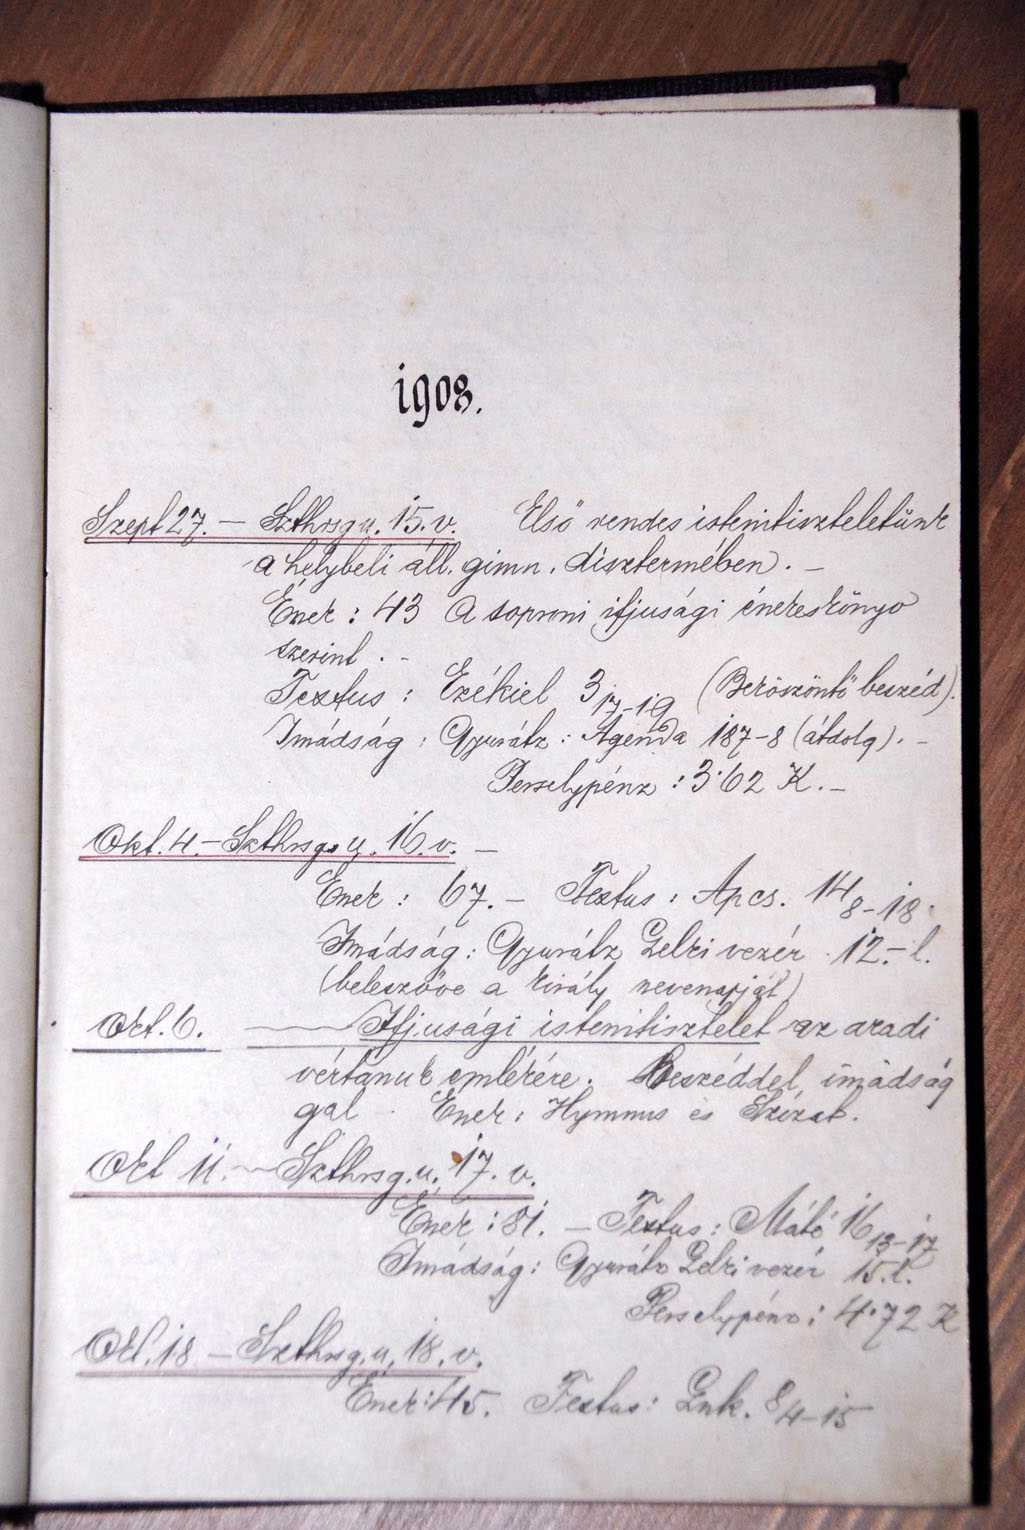 1908.
Szept 27. – Szthrsg u. 15. v. Első rendes istenitiszteletünk
a helybeli áll. gimn. dísztermében. –
Ének : 43 A soproni ifjusági énekeskönyv
szerint . -
Textus : Ezékiel 3 17–19 (Beköszöntő beszéd).
Imádság : Gyurátz : Agenda 187–8 (átdolg). –
Perselypénz : 3·62 K. –
Okt. 4. – Szthrsg. u. 16. v. –
Ének : 67. – Textus : Apcs. 14 8–18.
Imádság : Gyurátz Lelki vezér 12. – l.
(beleszőve a király nevenapját)
Okt. 6. Ifjusági istenitisztelet az aradi
vértanuk emlékére. Beszéddel, imádság
gal . Ének : Hymnus és Szózat.
Okt 11. – Szthrsg. u. 17. v.
Ének : 81. – Textus : Máté 16 13–17
Imádság : Gyurátz Lelki vezér 15. l.
Perselypénz : 4·72 K
Okt. 18 – Szthrsg. u. 18. v.
Ének : 45. Textus : Luk. 8 4–15